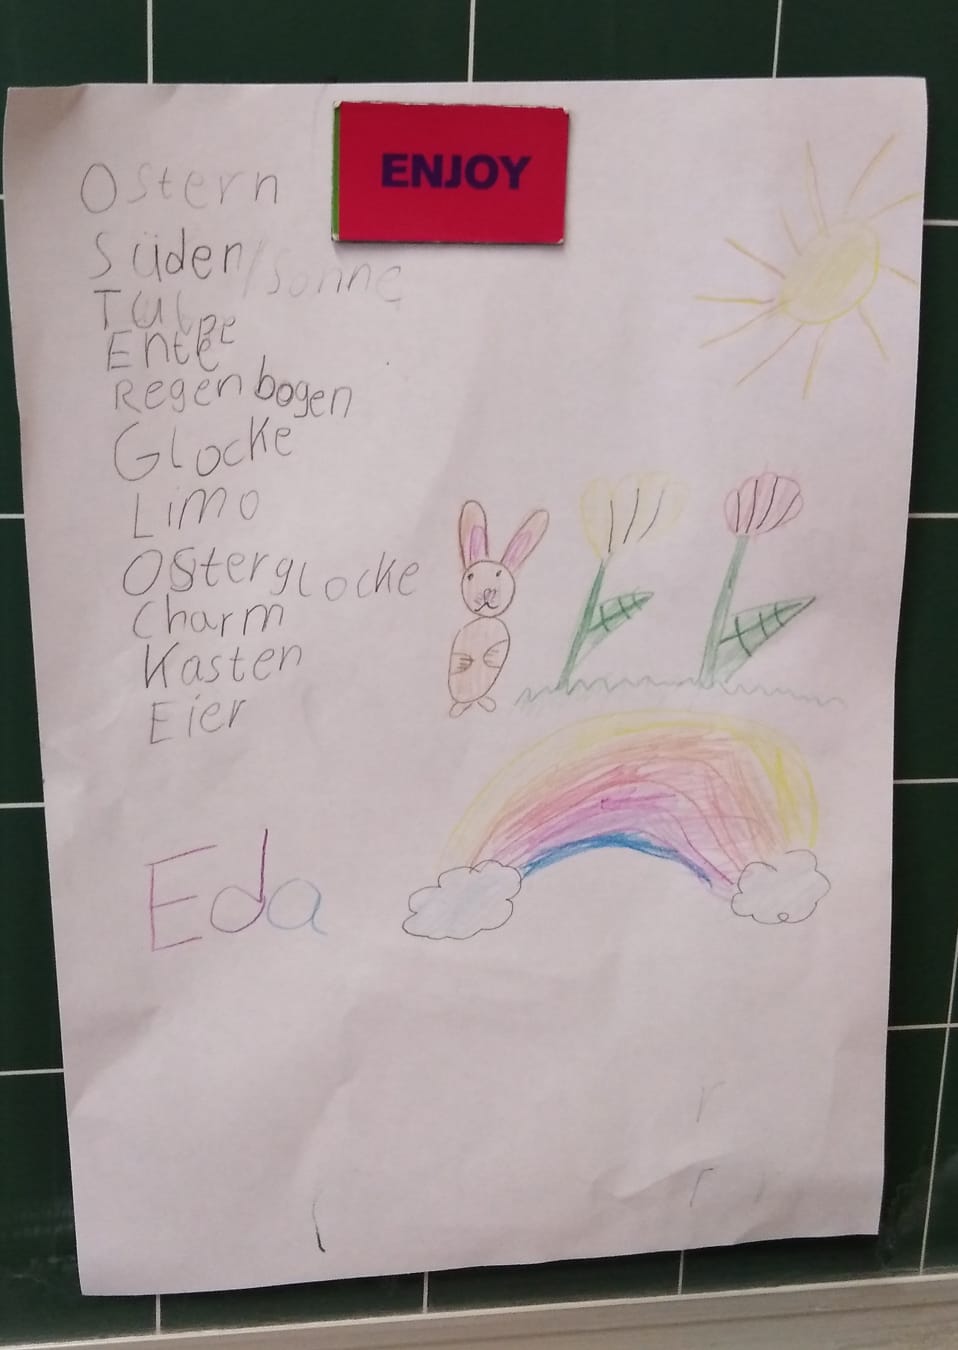 ENJOY
Ostern
Süden/Sonne
Tulpe
Ente
Regenbogen
Glocke
Limo
Osterglocke
Charm
Kasten
Eier
Eda
r
r